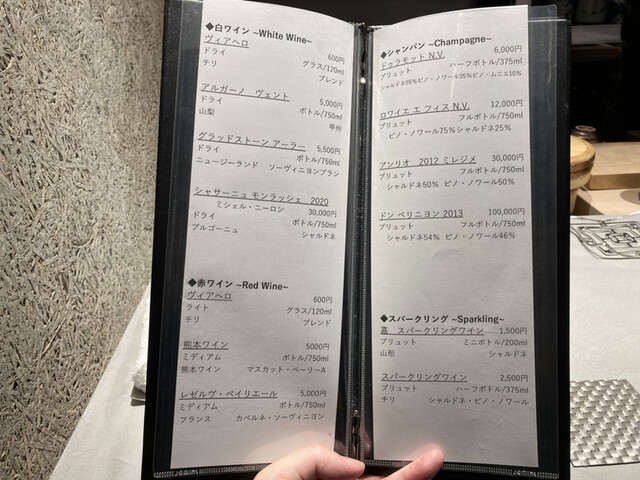 ◆白ワイン ~White Wine~
ヴィアヘロ 600円
ドライ グラス/120ml
チリ ブレンド
アルガーノ ヴェント 5,000円
ドライ ボトル/750ml
山梨 甲州
グラッドストーン アーラー 5,500円
ドライ ボトル/750ml
ニュージーランド ソーヴィニヨンブラン
シャサーニュ モンラッシェ 2020
ミシェル・ニーロン 30,000円
ドライ ボトル/750ml
ブルゴーニュ シャルドネ
◆赤ワイン ~Red Wine~
ヴィアヘロ 600円
ライト グラス/120ml
チリ ブレンド
熊本ワイン 5000円
ミディアム ボトル/750ml
熊本ワイン マスカット・ベーリーA
レゼルヴ・ベイリエール 5,000円
ミディアム ボトル/750ml
フランス カベルネ・ソーヴィニヨン
◆シャンパン ~Champagne~
ドゥラモット N.V. 6,000円
ブリュット ハーフボトル/375ml
シャルドネ55%ピノ・ノワール35%ピノ・ムニエ10%
ロワイエ エ フィス N.V. 12,000円
ブリュット フルボトル/750ml
ピノ・ノワール75%シャルドネ25%
アンリオ 2012 ミレジメ 30,000円
ブリュット フルボトル/750ml
シャルドネ50% ピノ・ノワール50%
ドン ペリニヨン 2013 100,000円
ブリュット フルボトル/750ml
シャルドネ54% ピノ・ノワール46%
◆スパークリング ~Sparkling~
嘉 スパークリングワイン 1,500円
ブリュット ミニボトル/200ml
山形 シャルドネ
スパークリングワイン 2,500円
ブリュット ハーフボトル/375ml
チリ シャルドネ・ピノ・ノワール